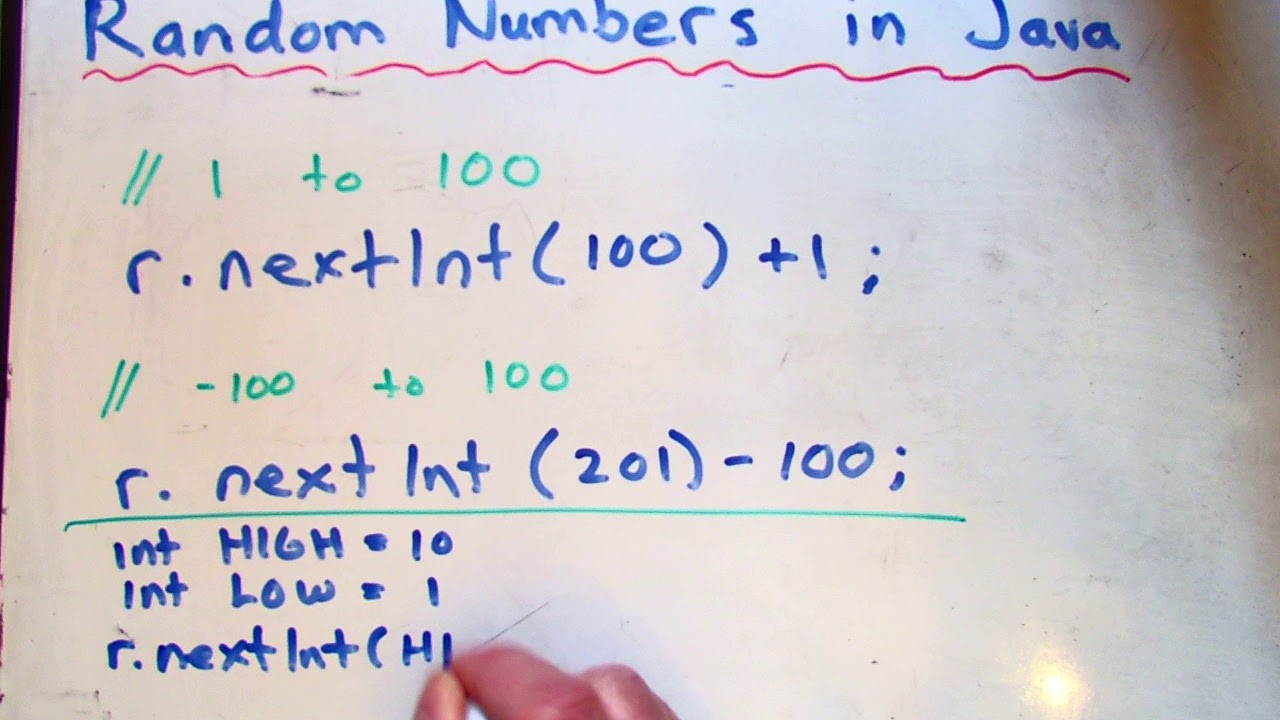 Random Numbers in Java
// 1 to 100
r.nextInt(100)+1;
// -100 to 100
r.nextInt(201)-100;
int HIGH = 10
int LOW = 1
r.nextInt(HI